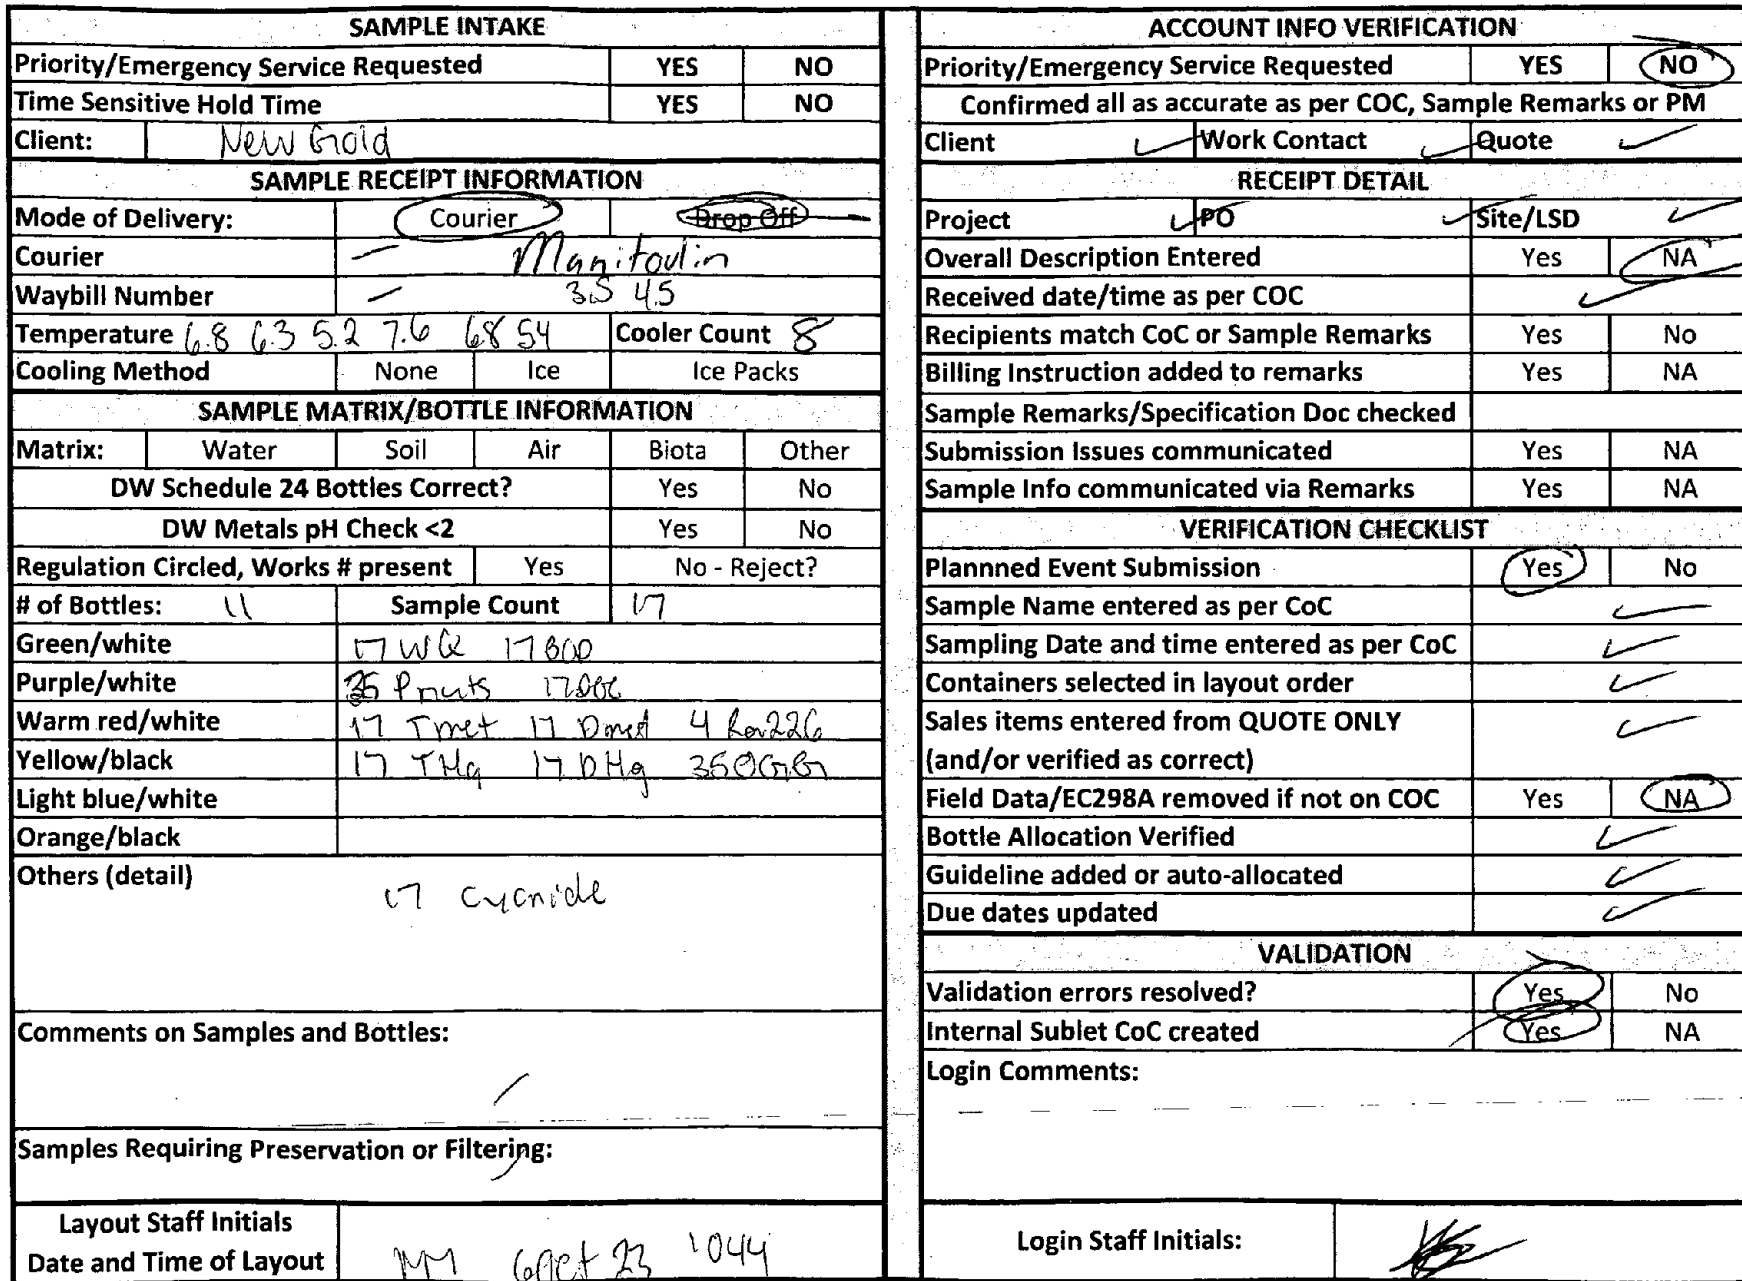 SAMPLE INTAKE
Priority/Emergency Service Requested YES NO
Time Sensitive Hold Time YES NO
Client: New Gold
SAMPLE RECEIPT INFORMATION
Mode of Delivery: Courier Drop Off
Courier Manitoulin
Waybill Number 3.5 4.5
Temperature 6.8 6.3 5.2 7.6 6.8 54 Cooler Count 8
Cooling Method None Ice Ice Packs
SAMPLE MATRIX/BOTTLE INFORMATION
Matrix: Water Soil Air Biota Other
DW Schedule 24 Bottles Correct? Yes No
DW Metals pH Check <2 Yes No
Regulation Circled, Works # present Yes No - Reject?
# of Bottles: 11 Sample Count 17
Green/white 17 WQ 17
Purple/white 17
Warm red/white 17 Tmet 17 Dmet 4
Yellow/black 17 THg 17 DHg
Light blue/white
Orange/black
Others (detail) 17 Cyanide
Comments on Samples and Bottles:
Samples Requiring Preservation or Filtering:
Layout Staff Initials
Date and Time of Layout 6 Oct 23 1044
ACCOUNT INFO VERIFICATION
Priority/Emergency Service Requested YES NO
Confirmed all as accurate as per COC, Sample Remarks or PM
Client Work Contact Quote
RECEIPT DETAIL
Project PO Site/LSD
Overall Description Entered Yes NA
Received date/time as per COC
Recipients match CoC or Sample Remarks Yes No
Billing Instruction added to remarks Yes NA
Sample Remarks/Specification Doc checked
Submission Issues communicated Yes NA
Sample Info communicated via Remarks Yes NA
VERIFICATION CHECKLIST
Plannned Event Submission Yes No
Sample Name entered as per CoC
Sampling Date and time entered as per CoC
Containers selected in layout order
Sales items entered from QUOTE ONLY
(and/or verified as correct)
Field Data/EC298A removed if not on COC Yes NA
Bottle Allocation Verified
Guideline added or auto-allocated
Due dates updated
VALIDATION
Validation errors resolved? Yes No
Internal Sublet CoC created Yes NA
Login Comments:
Login Staff Initials: